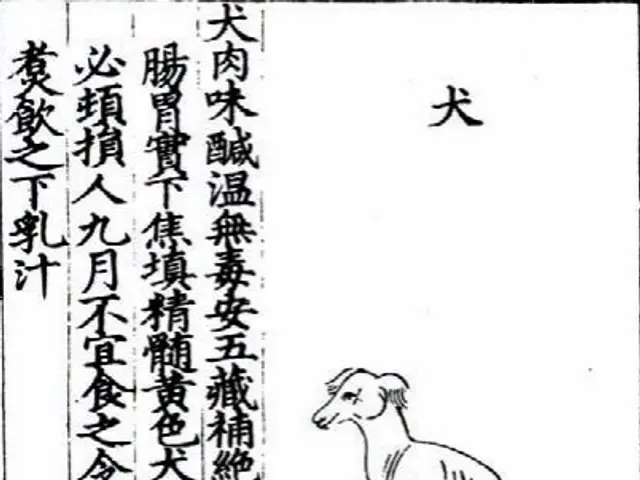 犬
犬肉味醎温無毒安五藏補絶
腸胃實下焦填精髓黄色犬
必頻損人九月不宜食之令
煑飲之下乳汁